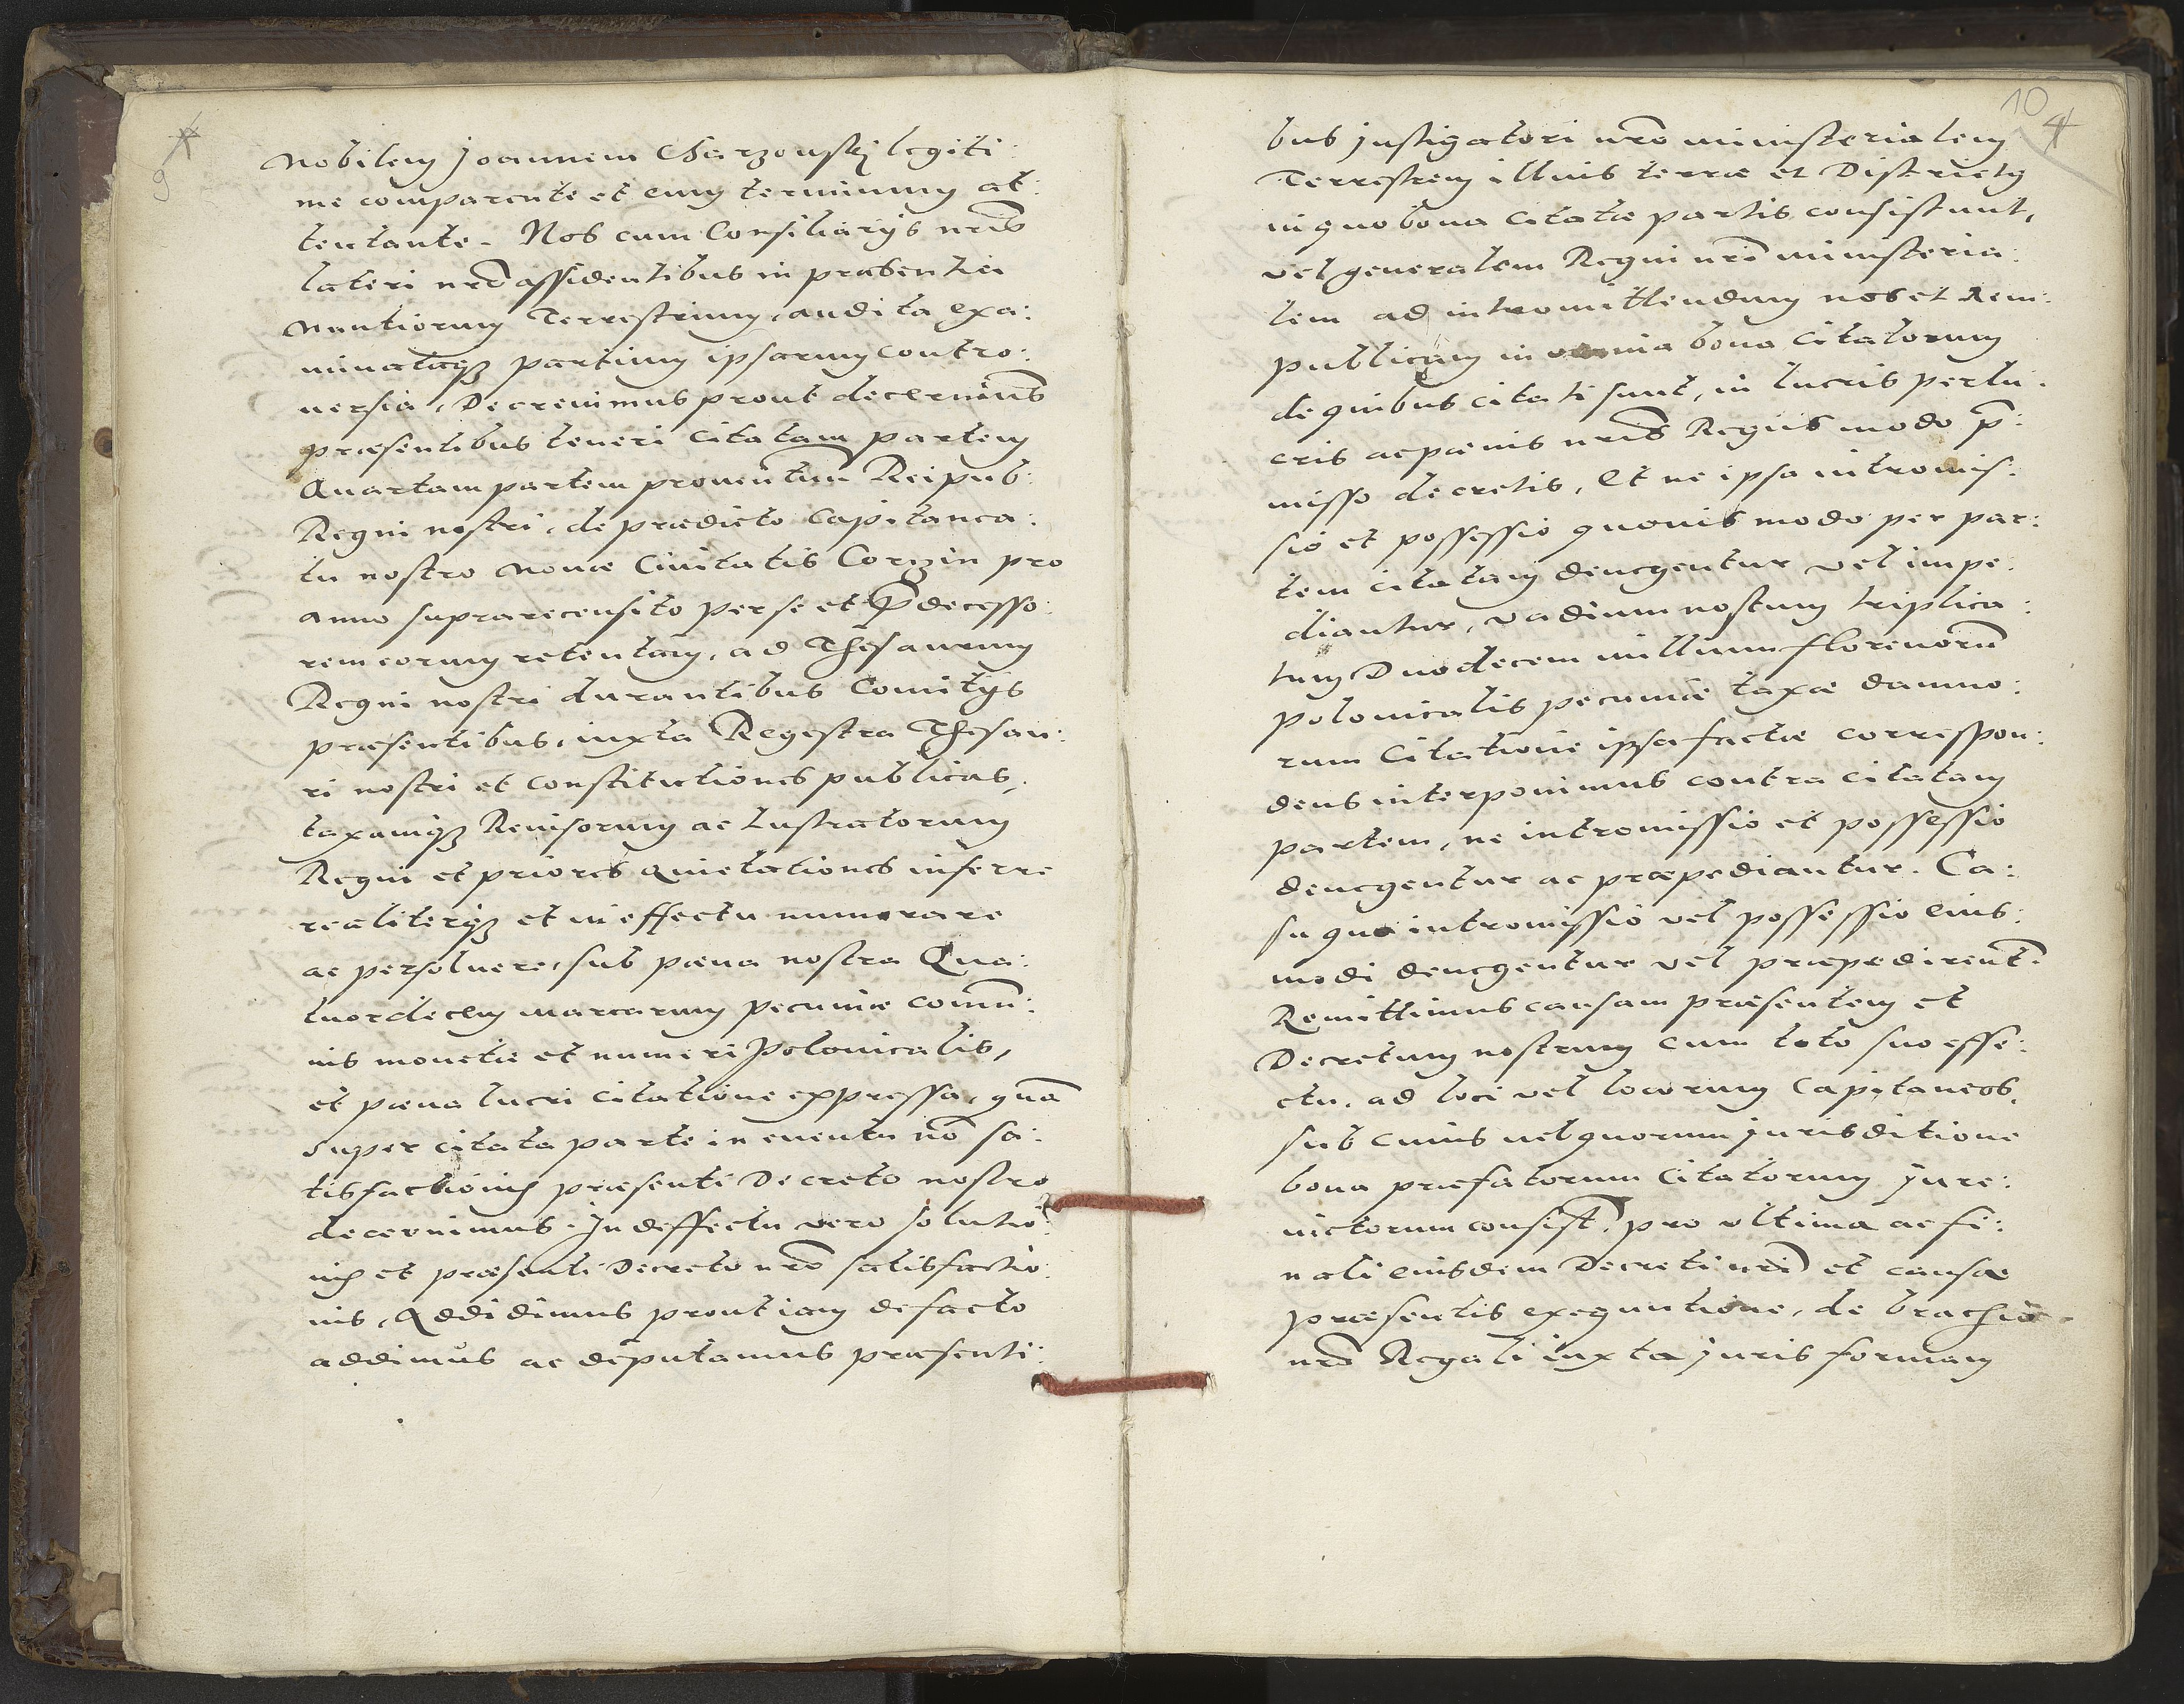 9
nobilem Joannem Charzowskj legiti:
me comparente et eum terminum at:
tentante. Nos cum Consiliarijs nrīs
lateri nrō assidentibus in praesentia
nuntiorum Terrestrium, audita exa:
minataqꝫ partium ipsarum contro:
uersia, Decreuimus prout decernimus
praesentibus teneri Citatam partem
Quartam partem prouentuū Reipub:
Regni nostri, de praedicto Capitanea:
tu nostro nouae Ciuitatis Corzin pro
anno suprarecensito per se et p̄decesso:
rem eorum retentam, ad Thesaurum
Regni nostri durantibus Comitijs
praesentibus, iuxta Regestra Thesau:
ri nostri et Constitutiones publicas,
taxamqꝫ Reuisorum ac Lustratorum
Regni et priores quietationes inferre
realiterqꝫ et in effectu numerare
ac persoluere, sub paena nostra Qua:
tuordecem marcarum pecuniae comū:
nis monetae et numeri Polonicalis,
et paena lucri Citatione expressa, quā
super citata parte in euentu nō sa:
tisfactionis praesenti Decreto nostro
decernimus. In deffectu vero solutio:
nis et praesenti Decreto nrō satisfactio:
nis, Addidimus prout iam de facto
addimus ac deputamus praesenti:
10
4
bus justigatori nrō ministerialem
Terrestrem illius terrae et Districtus
in quo bona Citatae partis consistunt,
vel generalem Regni nrī ministeria:
lem ad intromittendum nos et Rem:
publicam in omnia bona Citatorum
de quibus citati sunt, in lucris perlu:
cris ac paenis nrīs Regiis modo p̄:
misso decretis, Et ne ipsa intromis:
sio et possessio quouis modo per par:
tem citatam denegentur vel impe:
diantur, vadium nostrum triplica:
tum Duodecem millium florenorū
Polonicalis pecuniae taxae damno:
rum Citatione ipsa factae correspon:
dens interponimus contra citatam
partem, ne intromissio et possessio
denegentur ac praepediantur. Ca:
su quo intromissio vel possessio eius:
modi denegentur vel praepedirent.
Remittimus causam praesentem et
Decretum nostrum cum toto suo effe:
ctu, ad loci vel locorum Capitaneos,
sub cuius uel quorum jurisditione
bona praefatorum Citatorum jure:
uictorum consist: pro vltima ac fi:
nali eiusdem Decreti nrī et causae
praesentis exequutione, de brachio
nrō Regali iuxta juris formam